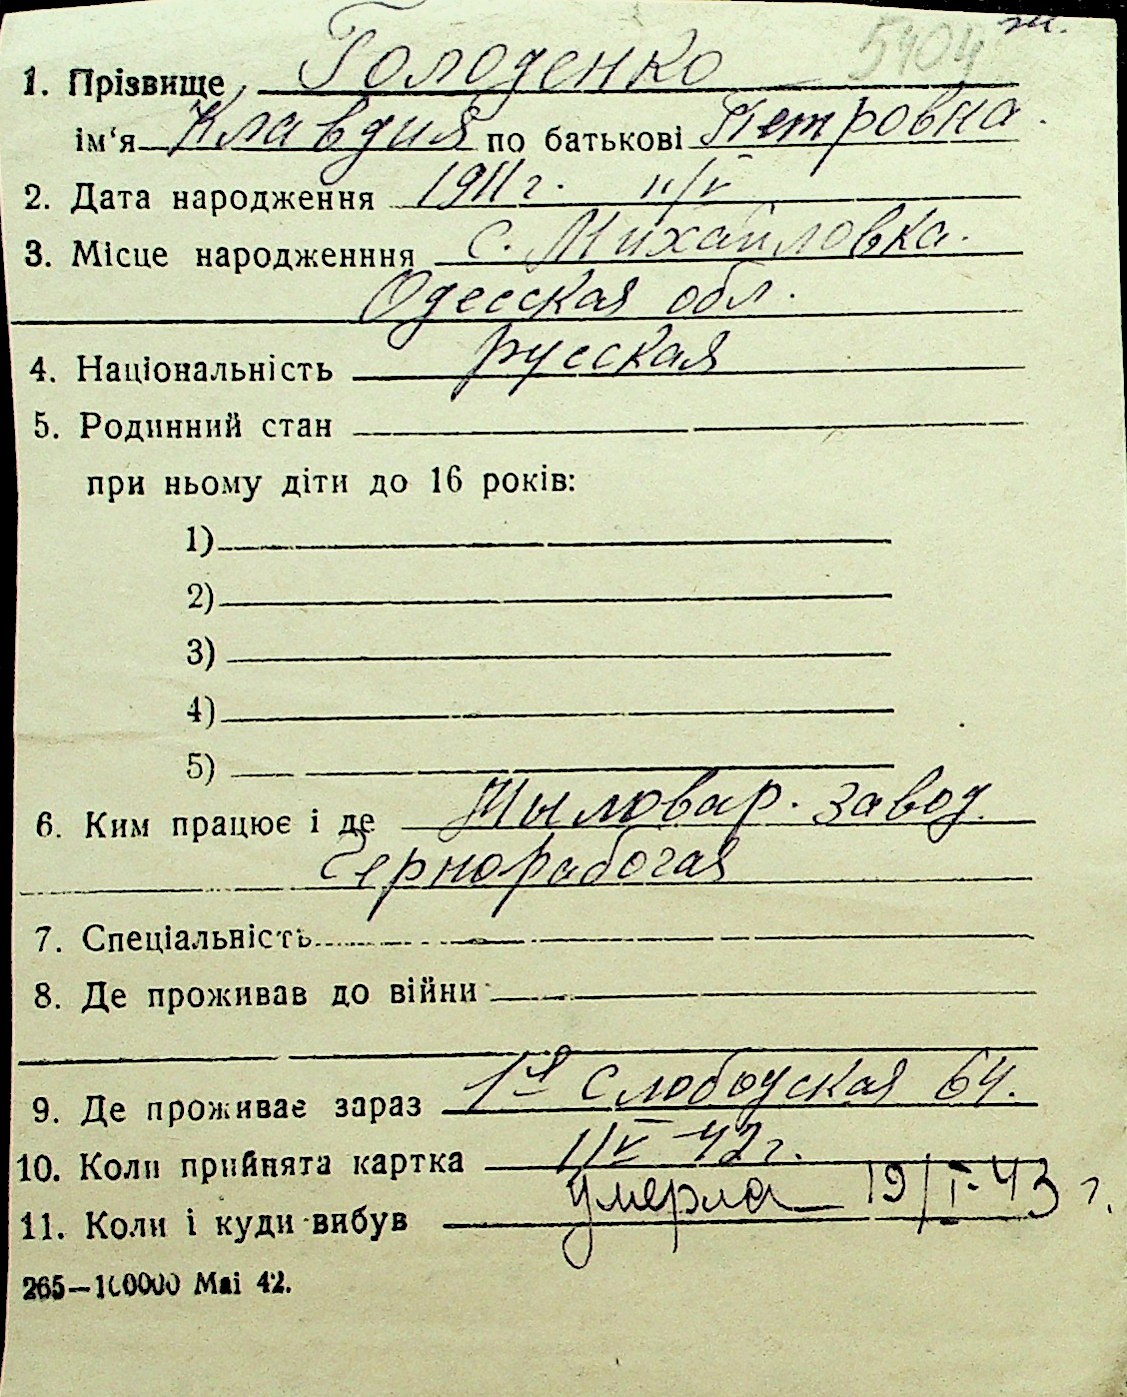 5404 ж.
1. Прізвище Голоденко
ім‘я Клавдия по батькові Петровна.
2. Дата народження 1911 г. 11/V
3. Місце народженння с. Михайловка.
Одесская обл.
4. Національність русская
5. Родинний стан
при ньому діти до 16 років:
1)
2)
3)
4)
5)
6. Ким працює і де Мыловар. завод.
Чернорабочая
7. Спеціальність
8. Де проживав до війни
9. Де проживає зараз 1я Слободская 64.
10. Коли прийнята картка 1/V-42 г.
11. Коли і куди вибув умерла 19/I-43 г.
265—100000 Маі 42.